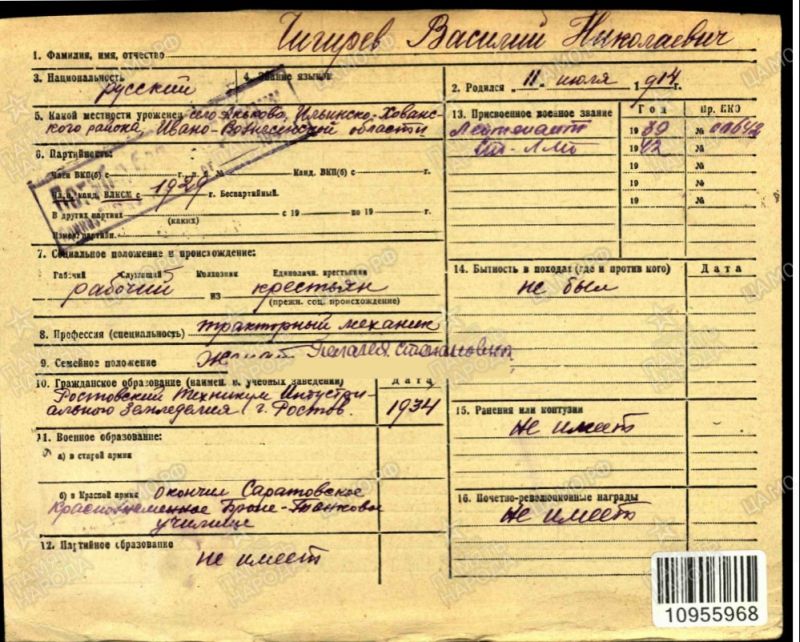 Чигирев Василий Николаевич
1. Фамилия, имя, отчество
3. Национальность русский
4. Знание языков
2. Родился „ 11 " июля 1914 г.
5. Какой местности уроженец село Яньково, Ильинско-Хованс-
кого района, Ивано-Вознесенской области
6. Партийность:
Член ВКП(б) с г. п. б. № Канд. ВКП(б) с г.
Чл. и канд. ВЛКСМ с 1929 г. Беспартийный.
В других партиях с 19 по 19 г.
(каких)
7. Социальное положение и происхождение:
Рабочий Служащий Колхозник Единоличн. крестьянин
рабочий из крестьян
(прежн. соц. происхождение)
8. Профессия (специальность) тракторный механик
9. Семейное положение Женат Степановна
10. Гражданское образование (наимен. в. учебных заведений) Дата
Ростовский Техникум Индустри-
ального Земледелия г. Ростов. 1934
11. Военное образование:
а) в старой армии
б) в Красной армии окончил Саратовское
Краснознаменное Броне-Танковое
училище
12. Партийное образование
не имеет
13. Присвоенное военное звание Год Пр. НКО
Лейтенант 1939 №
Ст. Л-нт 1942 №
19 №
19 №
19 №
14. Бытность в походах (где и против кого) Дата
не был
15. Ранения или контузии
Не имеет
16. Почетно-революционные награды
Не имеет
10955968
ЦАМО.РФ
ПАМЯТЬ НАРОДА